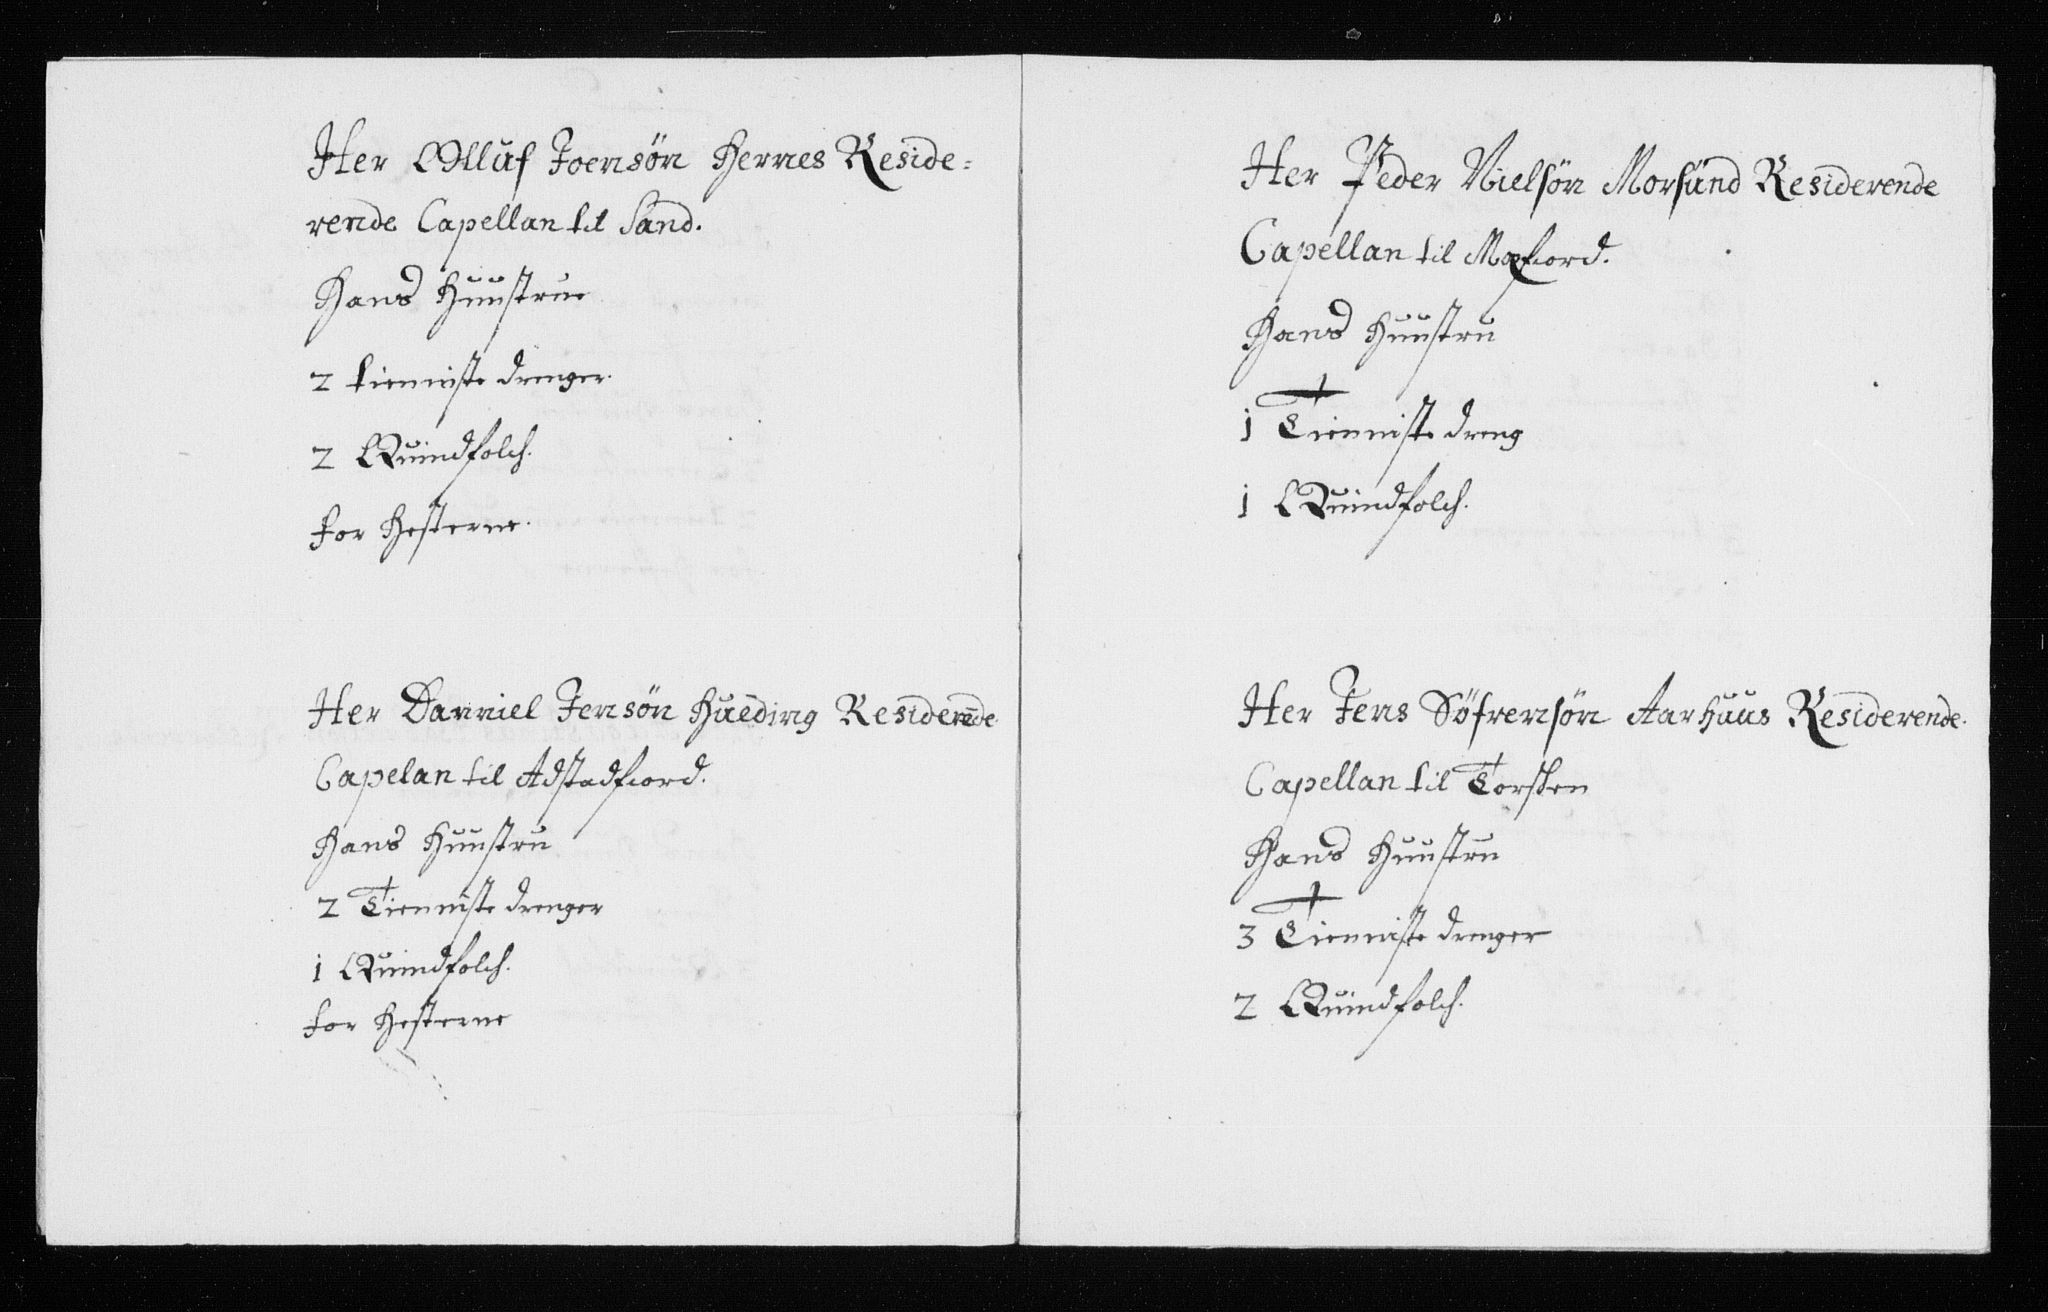 Her Olluf Joensøn Hernes Reside=
rende Capellan til Sand.
Hans Huustrue
2 tienniste drenger.
2 Quindfolch.
for Hesterne.
Her Danniel Jensøn Hueding Residerēde
Capelan til Adstadfiord.
Hans Huustru
2 Tienniste drenger
1 Quindfolch.
for Hesterne
Her Peder Nielsøn Morsund Residerende
Capellan til Maxfiord.
Hans Huustru
1 Tienniste dreng
1 Quindfolch.
Her Jens Søfrensøn Aarhuus Residerende.
Capellan til Torsken
Hans Huustru
3 Tienniste drenger
2 Quindfolch.